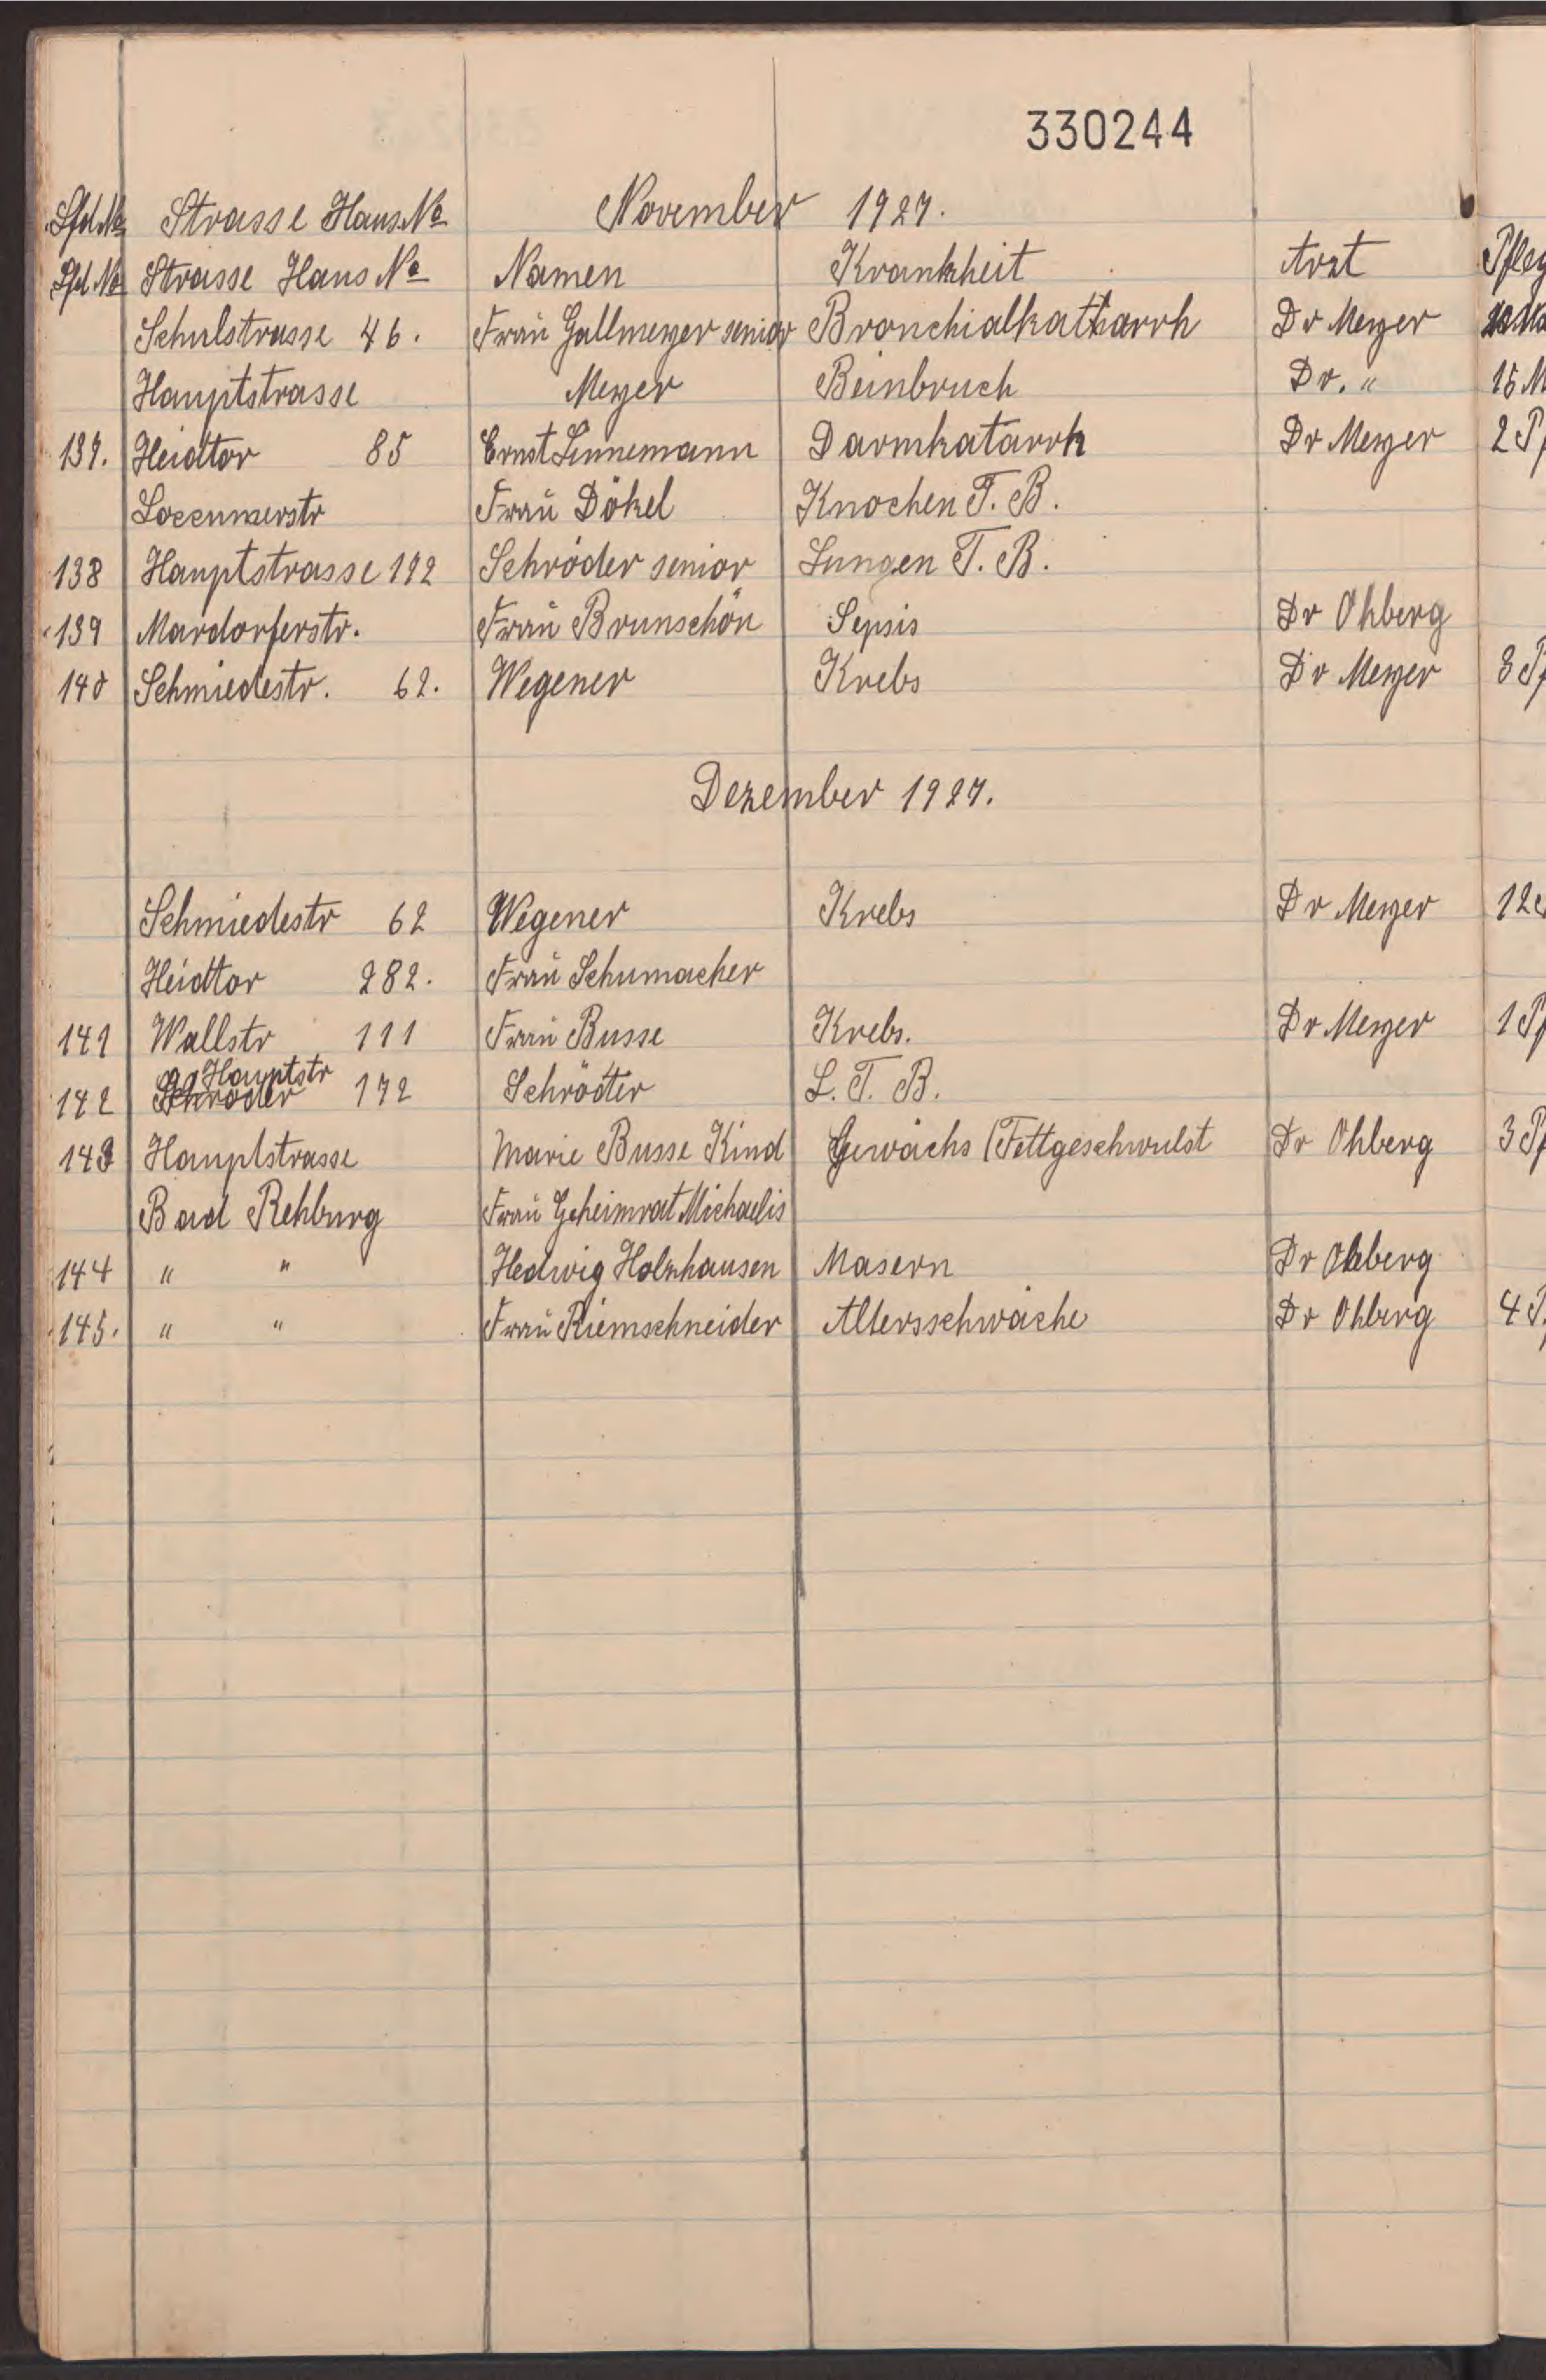 330244
Lfd. No Strasse Haus No November 1927.
Lfd. No Strasse Haus No Namen Krankheit Arzt Pfleg
Schulstrasse 46. Frau Gallmeyer senior Bronchialkatharrh Dr Meyer
Hauptstrasse Meyer Beinbruch Dr. " 15 M
137. Heidtor 85 Ernst Linnemann Darmkatarrh Dr Meyer 2 Pf
Loccumerstr Frau Dökel Knochen T. B.
138 Hauptstrasse 172 Schröder senior Lungen T. B.
139 Mardorferstr. Frau Brunschön Sepsis Dr Ohberg
140 Schmiedestr. 62. Wegener Krebs Dr Meyer 3 Pf
Dezember 1927.
Schmiedestr 62 Wegener Krebs Dr Meyer 12
Heidtor 282. Frau Schumacher
141 Wallstr 111 Frau Busse Krebs. Dr Meyer 1 Pf
Hauptstr
142 Schröder 172 Schröder L. T. B.
143 Hauptstrasse Marie Busse Kind Gewächs (Fettgeschwulst Dr Ohberg 3 Pf
Bad Rehburg Frau Geheimrat Michaelis
144 " " Hedwig Holzhausen Masern Dr Ohberg
145. " " Frau Riemschneider Altersschwäche Dr Ohberg 4 P